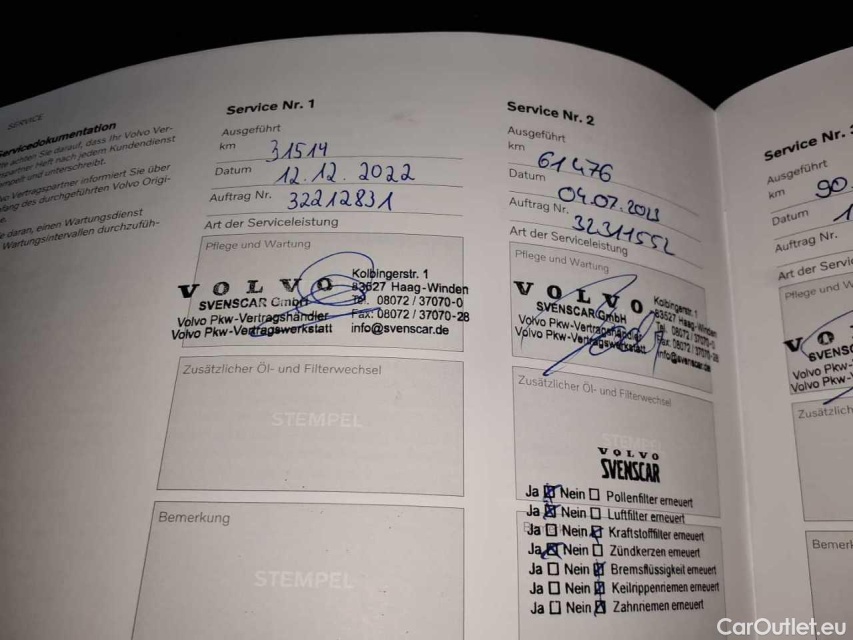 SERVICE
Servicedokumentation
achten Sie darauf, dass Ihr Volvo Ver-
partner Heft nach jedem Kundendienst
und unterschreibt.
Vertragspartner informiert Sie über
des durchgeführten Volvo Origi-
daran, einen Wartungsdienst
Wartungsintervallen durchzufüh-
Service Nr. 1
Ausgeführt
km 31514
Datum 12.12.2022
Auftrag Nr. 32212831
Art der Serviceleistung
Pflege und Wartung
VOLVO
SVENSCAR GmbH
Volvo Pkw-Vertragshändler
Volvo Pkw-Vertragswerkstatt
Kolbingerstr. 1
83527 Haag-Winden
Tel. 08072 / 37070-0
Fax: 08072 / 37070-28
info@svenscar.de
Zusätzlicher Öl- und Filterwechsel
STEMPEL
Bemerkung
STEMPEL
Service Nr. 2
Ausgeführt
km 61476
Datum 04.07.2023
Auftrag Nr. 32311552
Art der Serviceleistung
Pflege und Wartung
VOLVO
SVENSCAR GmbH
Volvo Pkw-Vertragshändler
Volvo Pkw-Vertragswerkstatt
Kolbingerstr. 1
83527 Haag-Winden
Tel. 08072 / 37070-0
Fax: 08072 / 37070-28
info@svenscar.de
Zusätzlicher Öl- und Filterwechsel
STEMPEL
VOLVO
SVENSCAR
Ja ☒ Nein ☐ Pollenfilter erneuert
Ja ☒ Nein ☐ Luftfilter erneuert
Ja ☐ Nein ☒ Kraftstofffilter erneuert
Ja ☒ Nein ☐ Zündkerzen erneuert
Ja ☐ Nein ☒ Bremsflüssigkeit erneuert
Ja ☐ Nein ☒ Keilrippenriemen erneuert
Ja ☐ Nein ☒ Zahnriemen erneuert
Service Nr. 3
Ausgeführt
km 90
Datum 1
Auftrag Nr.
Art der Servic
Pflege und W
VO
SVENSC
Volvo Pkw-
Volvo Pkw-
Zusätzlich
Bemerk
CarOutlet.eu